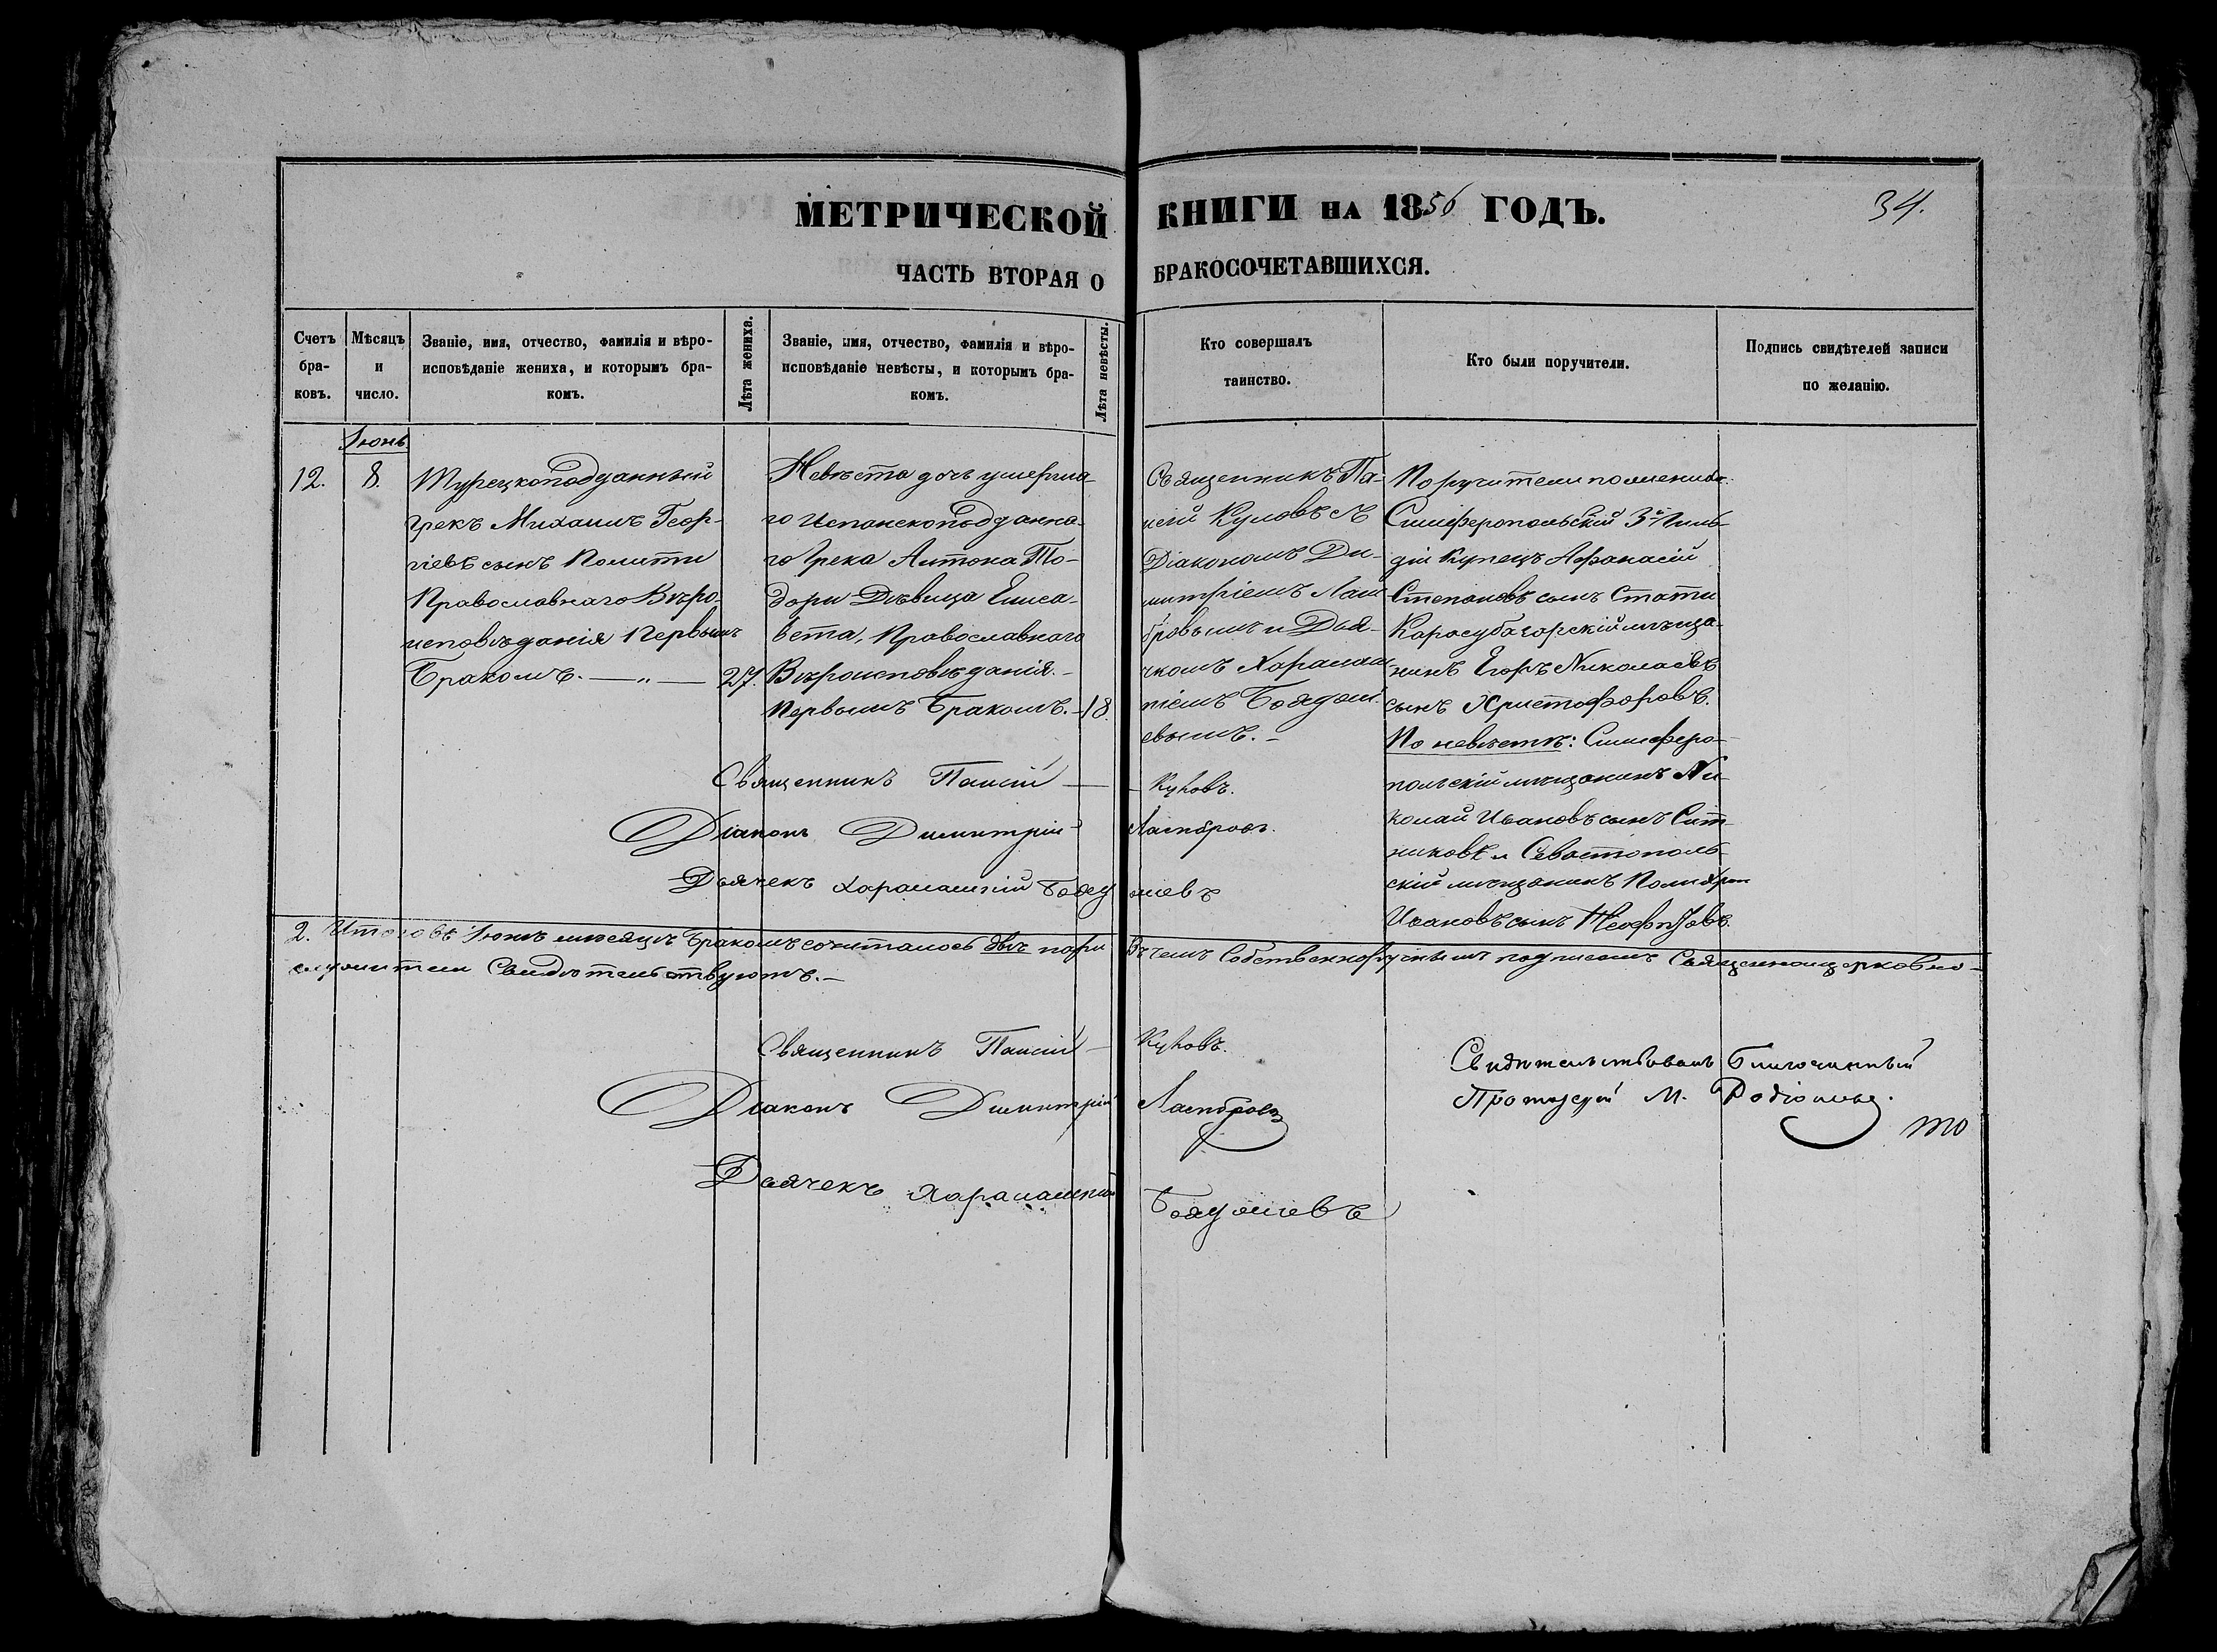 МЕТРИЧЕСКОЙ КНИГИ НА 1856 ГОДЪ.
34.
ЧАСТЬ ВТОРАЯ О БРАКОСОЧЕТАВШИХСЯ.
Счетъ бра-ковъ.
Мѣсяцъ и число.
Званіе, имя, отчество, фамилія и вѣро-
исповѣданіе жениха, и которымъ бра-
комъ.
Лѣта жениха.
Званіе, имя, отчество, фамилія и вѣро-
исповѣданіе невѣсты, и которымъ бра-
комъ.
Лѣта невѣсты.
Кто совершалъ
таинство.
Кто были поручители.
Подпись свидѣтелей записи
по желанію.
Іюнь
12.
8.
Турецкоподданный
грекъ Михаилъ Геор-
гіевъ сынъ Полити
Православнаго Вѣро-
исповѣданія Первымъ
Бракомъ. — „ —
27.
Невѣста дочь умерша-
го Испанскоподданна-
го Грека Антона То-
дори Дѣвица Елиса-
вета, Православнаго
Вѣроисповѣданія.-
Первымъ Бракомъ.-
18.
Священникъ Па-
исій Куловъ съ
Діакономъ Ди-
митріемъ
и Дья-
чкомъ Харалам-
піемъ
евымъ.-
Поручители по женихѣ:
Симферопольскій 3й Гиль-
діи Купецъ Афанасій
Степановъ сынъ Стати
Карасубазарскій мѣща-
нинъ Егоръ Николаевъ
сынъ Христофоровъ.
По невѣстѣ: Симферо-
польскій мѣщанинъ Ни-
колай Ивановъ сынъ Сит-
никовъ и Севастополь-
скій мѣщанинъ
Ивановъ сынъ
Священникъ Паисій — Куловъ.
Діаконъ Димитрій
Дьячекъ Харалампій
2. Итого въ Іюнѣ мѣсяцѣ Бракомъ сочиталось двѣ пары Въ чемъ Собственноручнымъ подписомъ Священноцерковно-
служители Свидѣтельствуютъ.-
Священникъ Паисій — Куловъ.
Діаконъ Димитрій
Дьячекъ Харалампій
Свидѣтельствовалъ Благочинный
Протоіерей М. Родіоновъ.